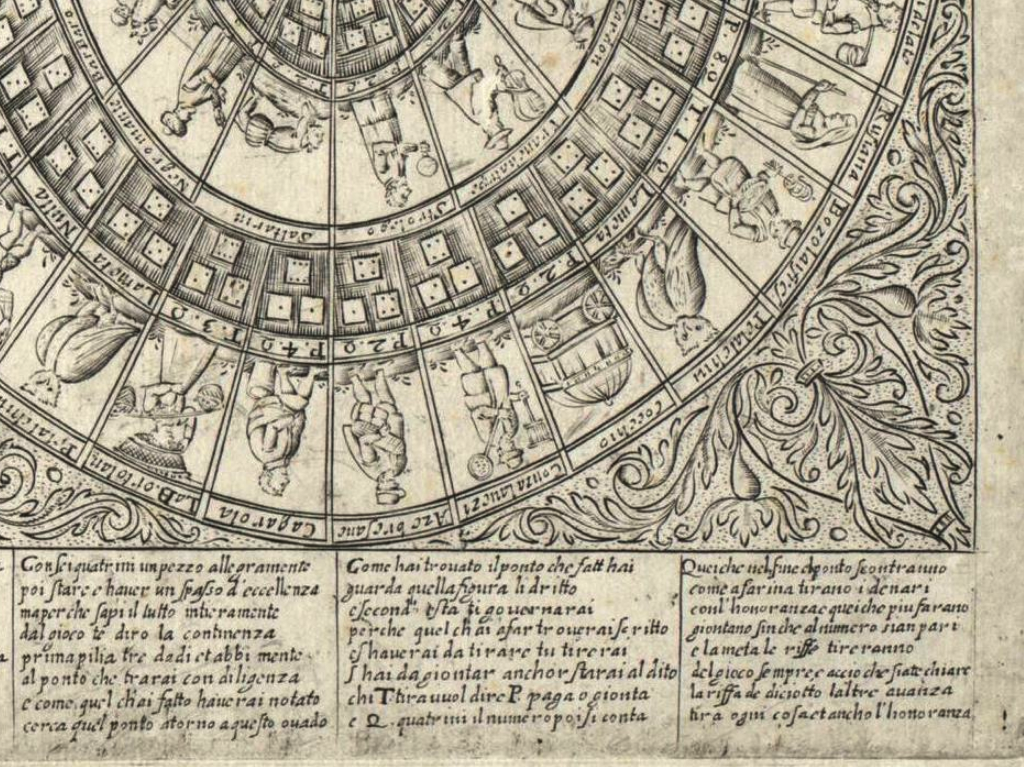 Barbaro
Negromante
Saltarin
Strologo
Carlon
T. 2. Q
Nuita
Lameta
T. 3. Q
P. 4. Q
P. 2. Q
P. 4. Q
T. 2. Q
Lameta
T. 1. Q
P. 8. Q
La Bortolana
Cagarola
Conzalavezi
Cocchio
Rufiana
Con sei quatrini un pezzo allegramente
poi stare e haver un spasso d'eccellenza
ma perche sapi il tutto intieramente
dal gioco te diro la continenza
prima pilia tre dadi et abbi mente
al ponto che trarai con diligenza
e come quel ch'ai fatto haverai notato
cerca quel ponto atorno a questo ovado
Come hai trovato il ponto che fatt' hai
guarda quella figura li dritto
e second' esta ti governarai
perche quel ch'ai afar troverai scritto
e s'haverai da tirare tu tirerai
s'hai da giontar anchor starai al dito
chi T tira vuol dire P paga o gionta
e Q. quatrini il numero poi si conta
Quei che nel fine el ponto scontranno
come afarina tirano i denari
con l'honoranza e quei che piu farano
giontano sin che al numero sian pari
e la meta le riffe tireranno
del gioco sempre e accio che siate chiare
la riffa de diciotto laltre avanza
tira ogni cosa et ancho l'honoranza